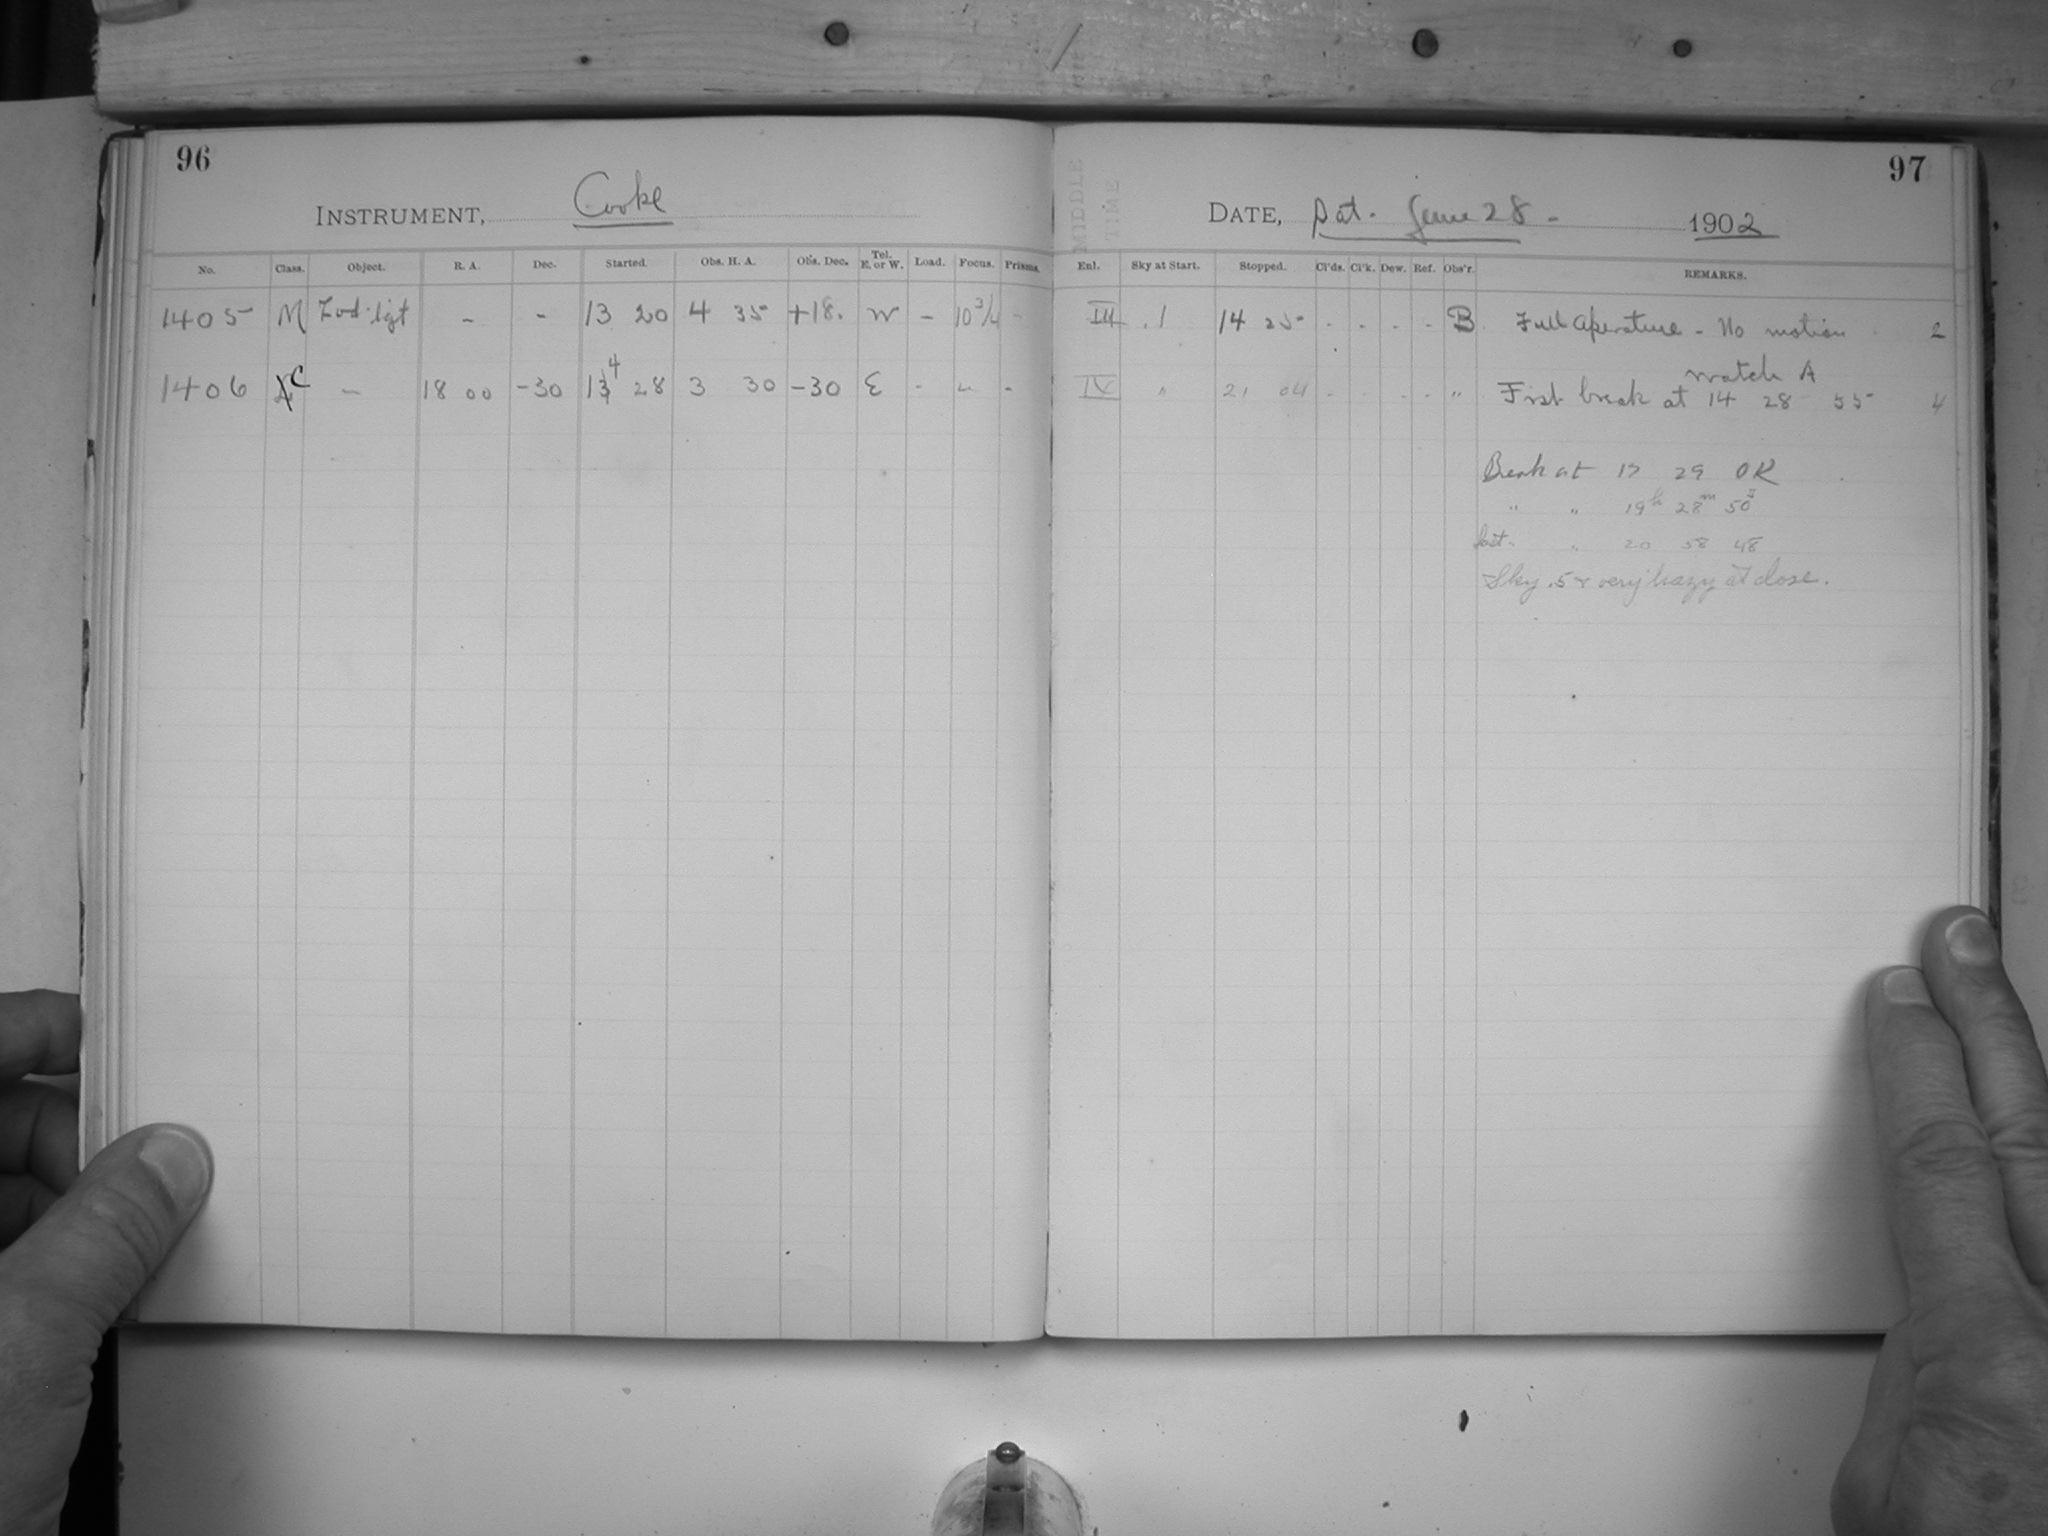 96
97
INSTRUMENT, Cooke
DATE, Sat. June 28. 1902
No. Class. Object. R. A. Dec. Started. Obs. H. A. Obs. Dec. Tel. E. or W. Load. Focus. Prisms.
Enl. Sky at Start. Stopped. Cl'ds. Cl'k. Dew. Ref. Obs'r. REMARKS.
1405 M Zod. lgt - - 13 20 4 35 +18. W - 10 3/4 -
III .1 14 25 . . . . B. Full Aperature - No motion 2
1406 C - 18 00 -30 14 28 3 30 -30 E - " -
IV " 21 04 . . . . " First break at 14 28 55 4
Watch A
Break at 17 29 OK
" " 19h 28m 50s
last. " 20 58 48
Sky .5 & very hazy at close.
MIDDLE
TIME